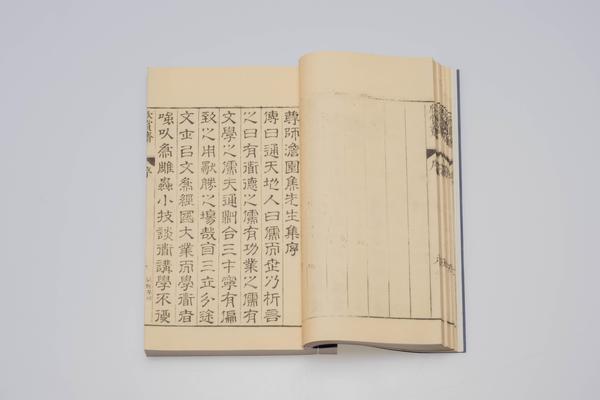 尊師澹園焦先生集序
傳曰通天地人曰儒而世乃析言
之曰有道德之儒有功業之儒有
文學之儒夫通劑合三才寧有偏
致之用歟勝之場哉自三立分途
文士以文為經國大業而學道者
嗤以為雕蟲小技談道講學不
欣賞齋 序